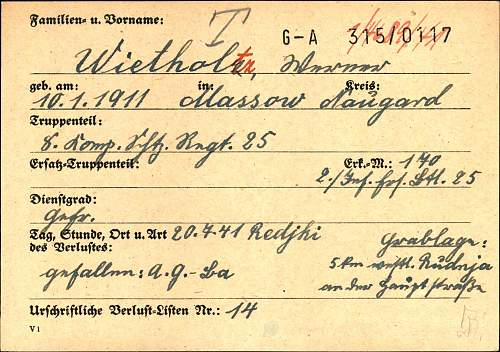 Familien- u. Vorname:
T G-A 315/0117
Wietholtz, Werner
geb. am: in: Kreis:
10.1.1911 Massow Naugard
Truppenteil:
8. Komp. Schtz. Regt. 25
Ersatz-Truppenteil: Erk.-M.: 170
2./Inf. Ers. Btl. 25
Dienstgrad:
Gefr.
Tag, Stunde, Ort u. Art 20.7.41 Redjki
des Verlustes: Grablage:
gefallen: A.G.-Ba 5 km westl. Rudnja
an der Hauptstraße
Urschriftliche Verlust-Listen Nr.: 14
V1